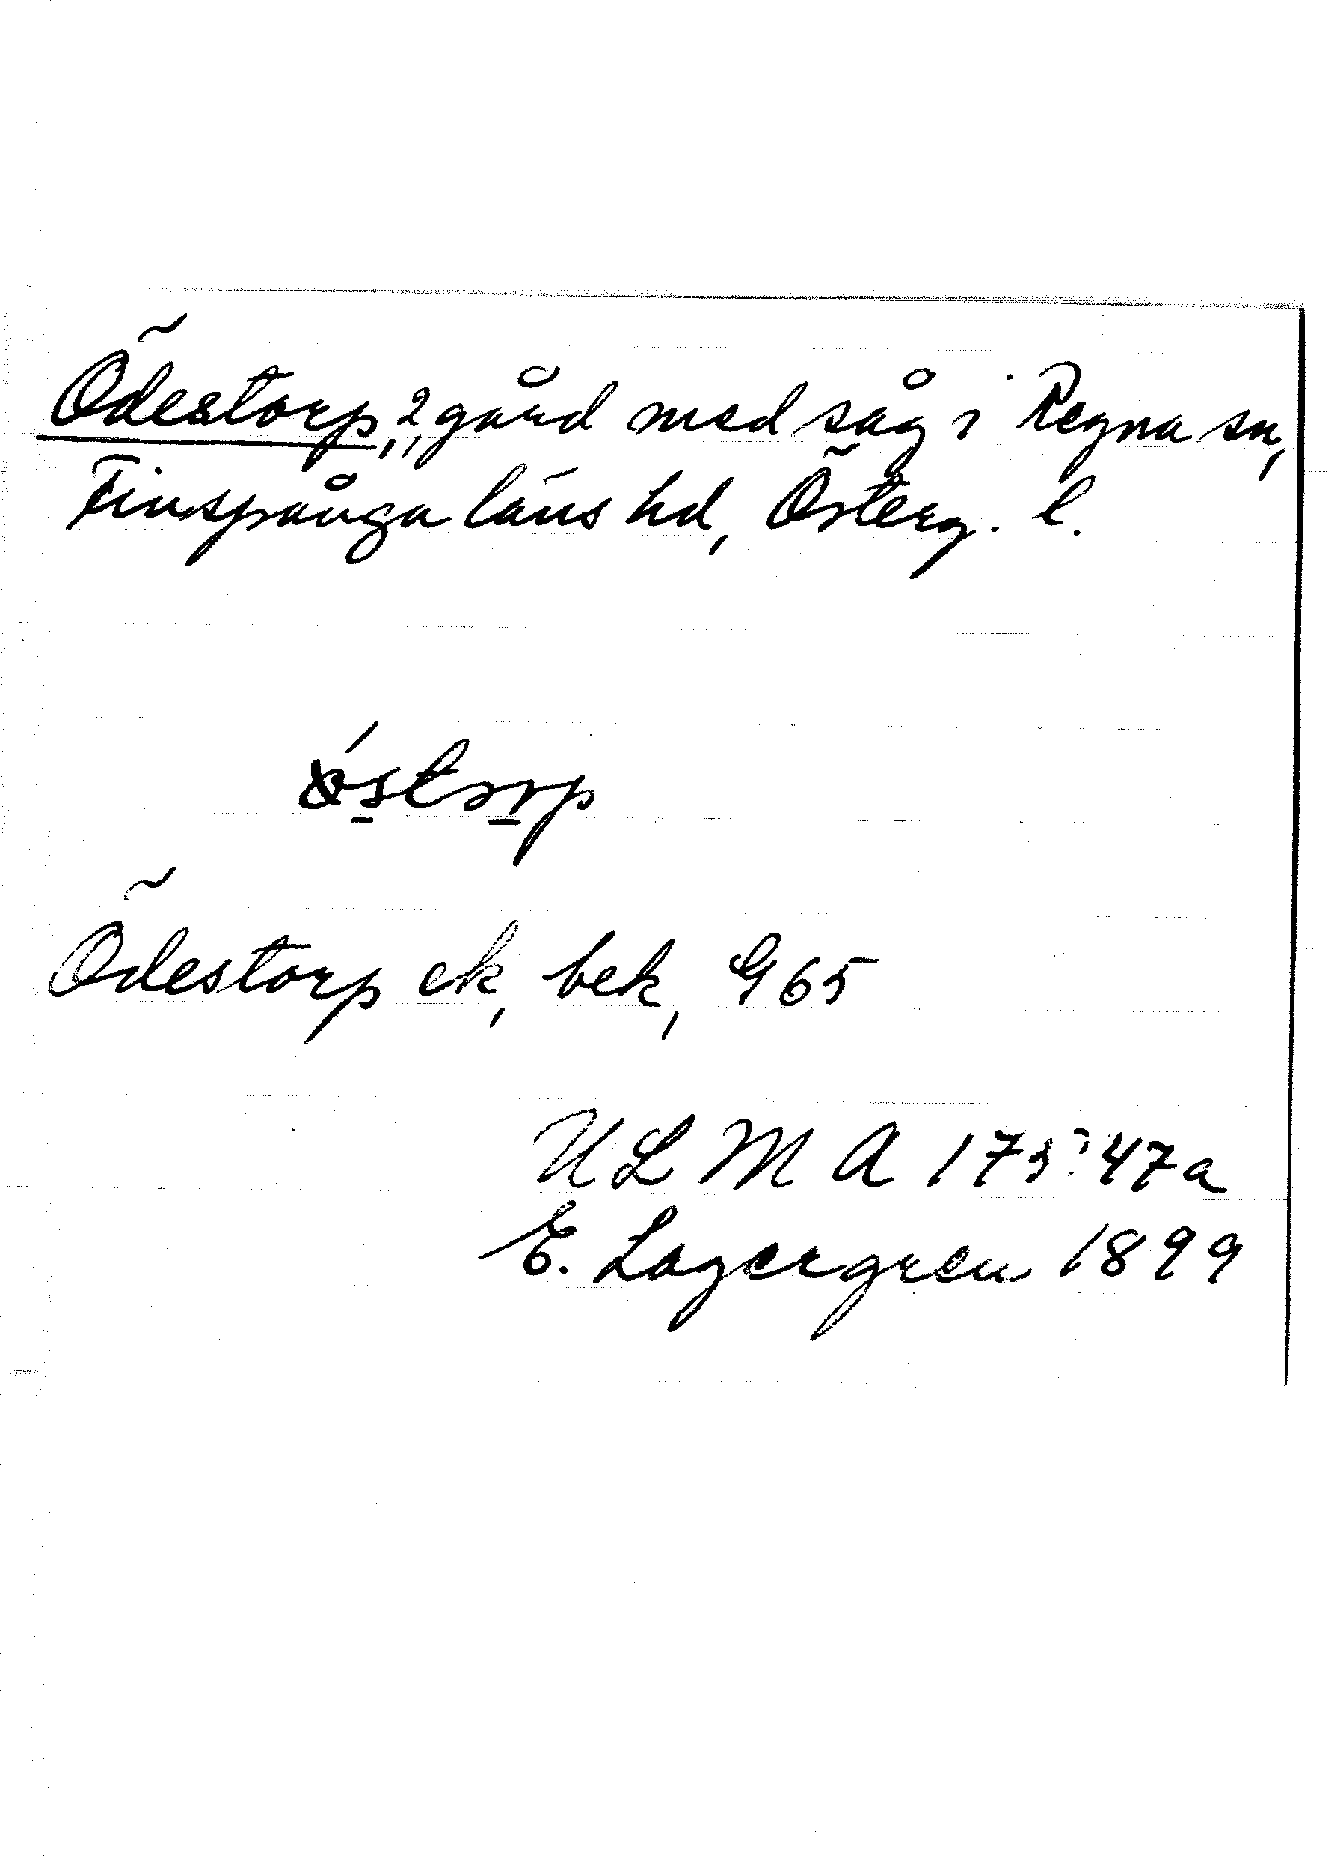 Ödestorp, 2, gård med såg i Regna sn,
Finspånga läns hd, Österg. l.
Ödestorp ek, bek, G65
ULMA 175:47a
E. Lagergren 1899